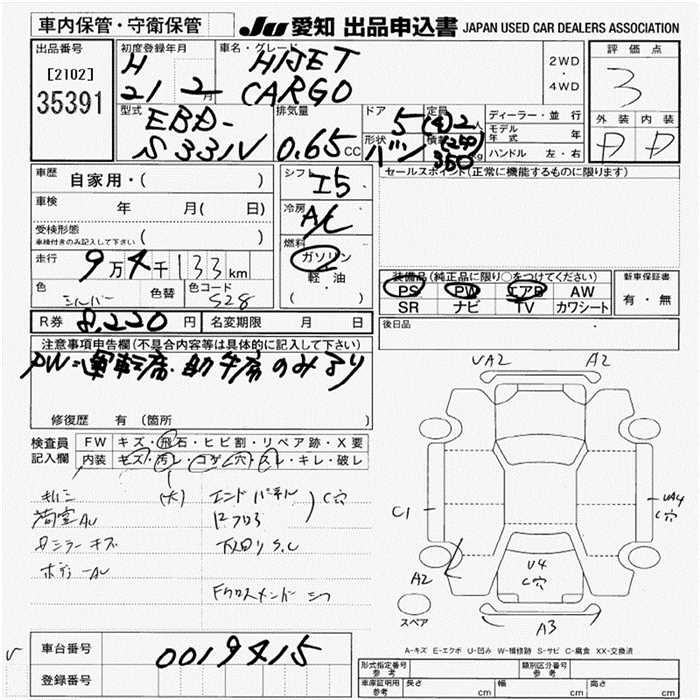 車内保管・守衛保管
JU 愛知 出品申込書 JAPAN USED CAR DEALERS ASSOCIATION
出品番号
[2102]
35391
初度登録年月
H
21 2 月
車名・グレード
HIJET
CARGO
2WD
・
4WD
評価点
3
外装 内装
D D
型式
EBD-
S331V
排気量
0.65 CC
ドア
5
形状
バン
定員
(4) 2 人
積載
(250)
350 kg
ディーラー・並行
モデル年式 年
ハンドル 左・右
車歴
自家用・( )
車検
年 月( 日)
受検形態
車検付きのみ記入して下さい ( )
走行
9万4千133km
色
シルバー
色替
色コード
S28
シフト
I5
冷房
A/C
燃料
ガソリン
軽・油
( )
セールスポイント(正常に機能するものに限ります)
装備品(純正品に限り○をつけてください)
PS PW エアB AW
SR ナビ TV カワシート
新車保証書
有・無
後日品
R券 8,220 円
名変期限 月 日
注意事項申告欄(不具合内容等は具体的に記入して下さい)
PW=運転席・助手席のみあり
修復歴 有(箇所 )
検査員
記入欄
FW キズ・飛石・ヒビ割・リペア跡・X要
内装 キズ・汚レ・コゲ・穴・スレ・キレ・破レ
(大)
エンドパネル
C穴
荷室AU
Dミラーキズ
下回りS.C
ボデーAU
Fクロスメンバー
UA2 A2
C1
UA4
C穴
U4
C穴
A2
A3
スペア
A-キズ E-エクボ U-凹み W-補修跡 S-サビ C-腐食 XX-交換済
車台番号
0019415
登録番号
形式指定番号
参考
類別区分番号
参考
車庫証明用
参考
長さ cm 幅 cm 高さ cm